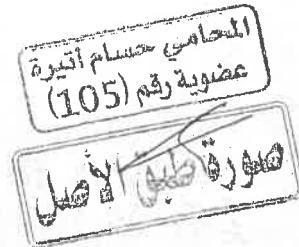 المحامي حسام أتيرة
عضوية رقم (105)
صورة طبق الأصل